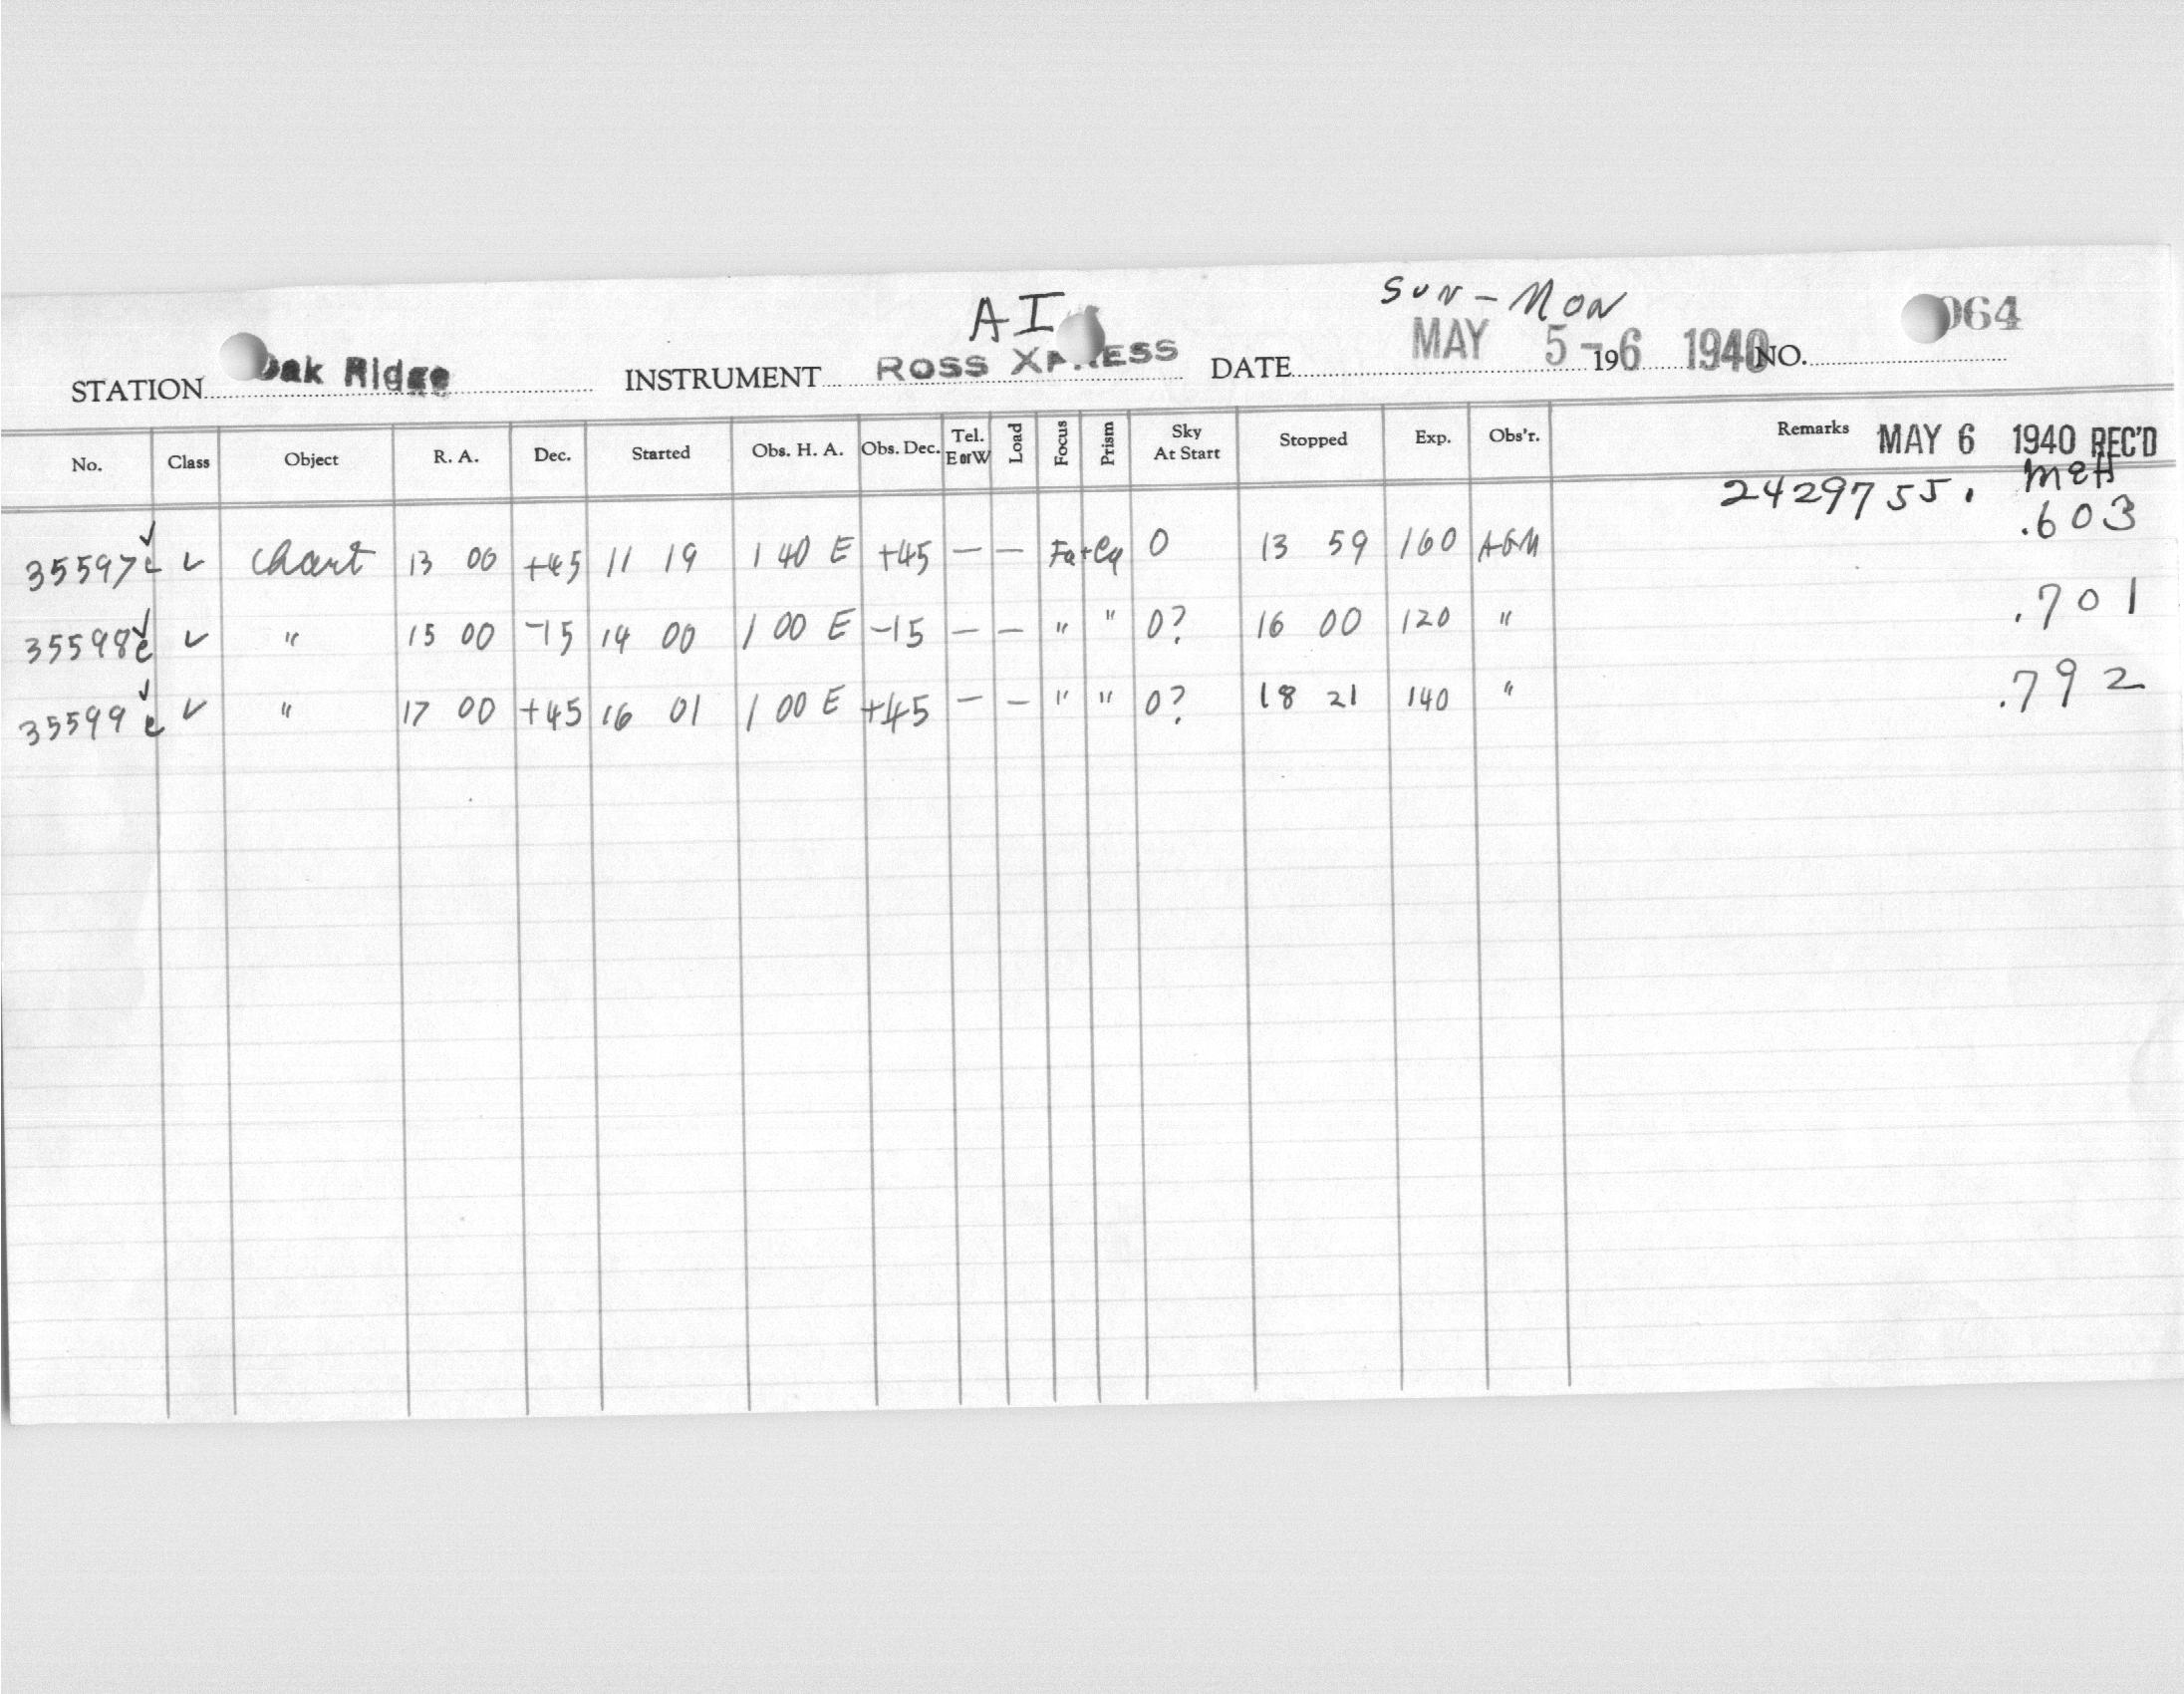 AI
SUN - MON
STATION Oak Ridge INSTRUMENT ROSS XPRESS DATE MAY 5-6 1940 19 NO. 064
No. Class Object R. A. Dec. Started Obs. H. A. Obs. Dec. Tel. E or W Load Focus Prism Sky At Start Stopped Exp. Obs'r. Remarks MAY 6 1940 REC'D
2429755. MEH
35597 e ✓ Chart 13 00 +45 11 19 1 40 E +45 — — 0 13 59 160 .603
35598 e ✓ " 15 00 -15 14 00 1 00 E -15 — — " " 0? 16 00 120 " .701
35599 e ✓ " 17 00 +45 16 01 1 00 E +45 — — " " 0? 18 21 140 " .792